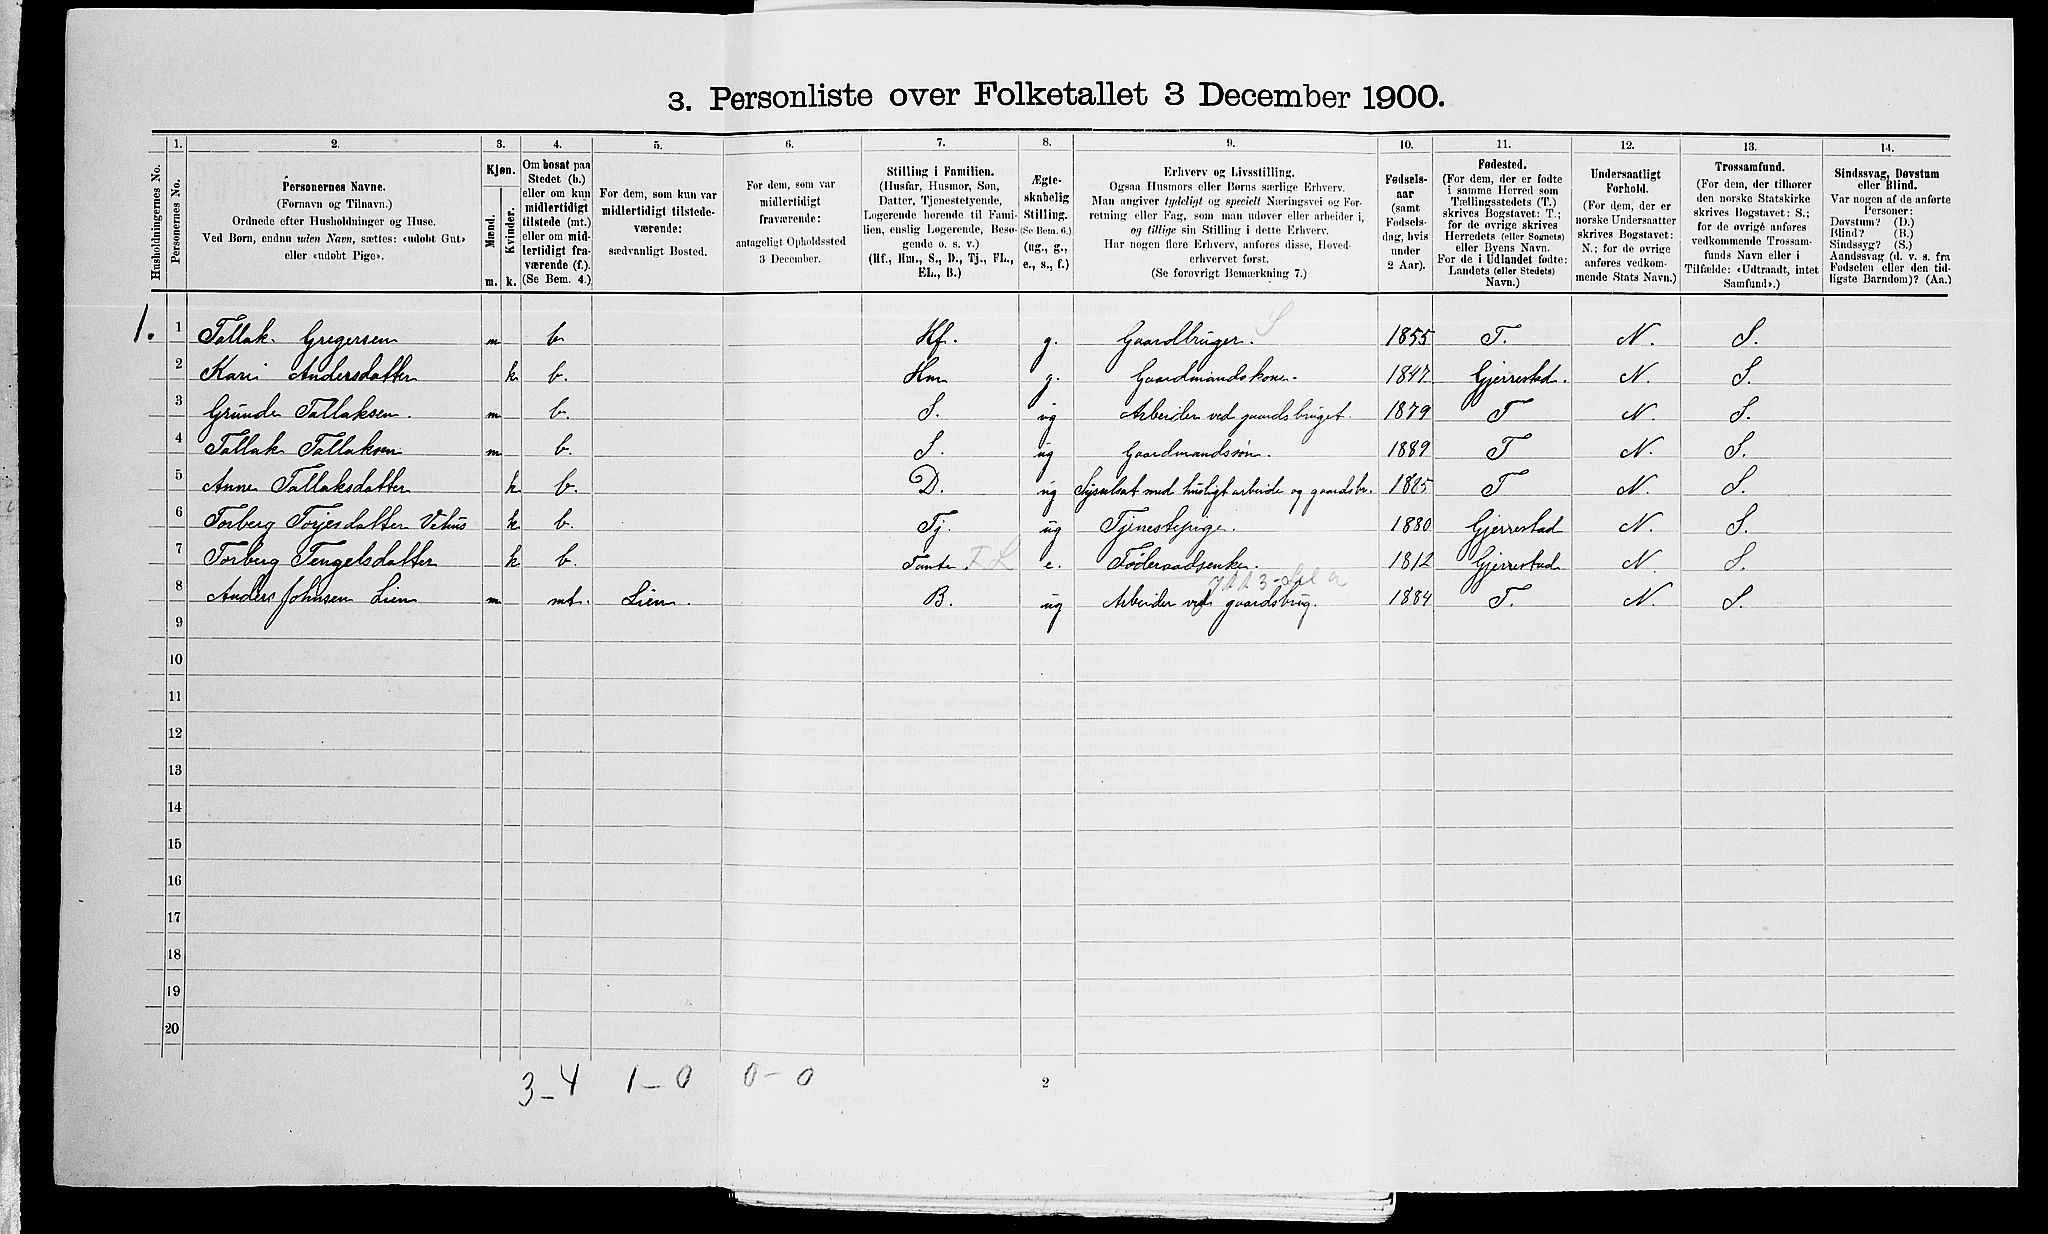 3. Personliste over Folketallet 3 December 1900.
1. 2. 3. 4. 5. 6. 7. 8. 9. 10. 11. 12. 13. 14.
Husholdningernes No.
Personernes No.
Personernes Navne.
(Fornavn og Tilnavn.)
Ordnede efter Husholdninger og Huse.
Ved Børn, endnu uden Navn, sættes: «udøbt Gut»
eller «udøbt Pige».
Kjøn.
Mænd. Kvinder.
m. k.
Om bosat paa
Stedet (b.)
eller om kun
midlertidigt
tilstede (mt.)
eller om mid-
lertidigt fra-
værende (f.).
(Se Bem. 4.)
For dem, som kun var
midlertidigt tilstede-
værende:
sædvanligt Bosted.
For dem, som var
midlertidigt
fraværende:
antageligt Opholdssted
3 December.
Stilling i Familien.
(Husfar, Husmor, Søn,
Datter, Tjenestetyende,
Logerende hørende til Fami-
lien, enslig Logerende, Besø-
gende o. s. v.)
(Hf., Hm., S., D., Tj., FL.,
EL., B.)
Ægte-
skabelig
Stilling.
(Se Bem. 6.)
(ug., g.,
e., s., f.)
Erhverv og Livsstilling.
Ogsaa Husmors eller Børns særlige Erhverv.
Man angiver tydeligt og specielt Næringsvei og For-
retning eller Fag, som man udøver eller arbeider i,
og tillige sin Stilling i dette Erhverv.
Har nogen flere Erhverv, anføres disse, Hoved-
erhvervet først.
(Se forøvrigt Bemærkning 7.)
Fødsels-
aar
(samt
Fødsels-
dag, hvis
under
2 Aar).
Fødested.
(For dem, der er fødte
i samme Herred som
Tællingsstedets (T.)
skrives Bogstavet: T.;
for de øvrige skrives
Herredets (eller Sognets)
eller Byens Navn.
For de i Udlandet fødte:
Landets (eller Stedets)
Navn.)
Undersaatligt
Forhold.
(For dem, der er
norske Undersaatter
skrives Bogstavet:
N.; for de øvrige
anføres vedkom-
mende Stats Navn.)
Trossamfund.
(For dem, der tilhører
den norske Statskirke
skrives Bogstavet: S.;
for de øvrige anføres
vedkommende Trossam-
funds Navn eller i
Tilfælde: «Udtraadt, intet
Samfund».)
Sindssvag, Døvstum
eller Blind.
Var nogen af de anførte
Personer:
Døvstum? (D.)
Blind? (B.)
Sindssyg? (S.)
Aandssvag (d. v. s. fra
Fødselen eller den tid-
ligste Barndom)? (Aa.)
1. 1 Tallak Gregersen m b. Hf. g. Gaardbruger. S 1855 T. N. S.
2 Kari Andersdatter k b. Hm g. Gaardmandskone. 1847 Gjerrestad. N. S.
3 Grunde Tallaksen. m b. S. ug Arbeider ved gaardsbruget. 1879 T N. S.
4 Tallak Tallaksen m b. S. ug Gaardmandssøn. 1889 T N. S.
5 Anne Tallaksdatter k b. D. ug Sysselsat med husligt arbeide og gaardsbr. 1885 T N. S.
6 Torberg Torjesdatter Vehus k b. Tj. ug Tjenestepige. 1880 Gjerrestad N. S.
7 Torberg Tengelsdatter k b. Tante. F L e. Føderaadsenke. 1812 Gjerrestad N. S.
8 Anders Johnsen Lien m mt. Lien. B. ug Arbeider ved gaardsbrug. 1884 T. N. S.
9
10
11
12
13
14
15
16
17
18
19
20
3-4 1-0 0-0
2